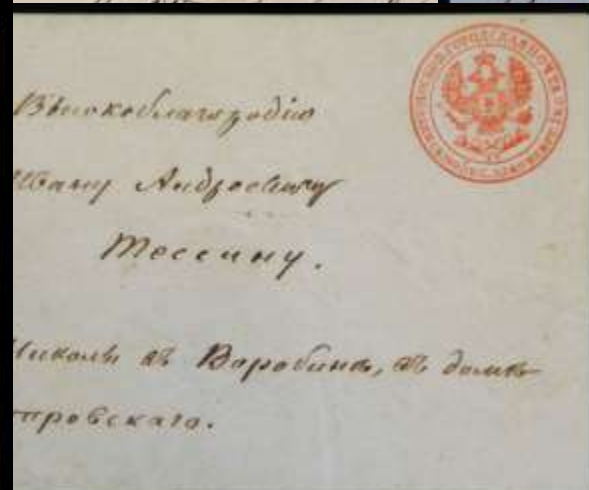 Высокоблагородію
Ивану Андреевичу
Тессину.
Николы въ Воробинѣ, въ домѣ
тровскаго.